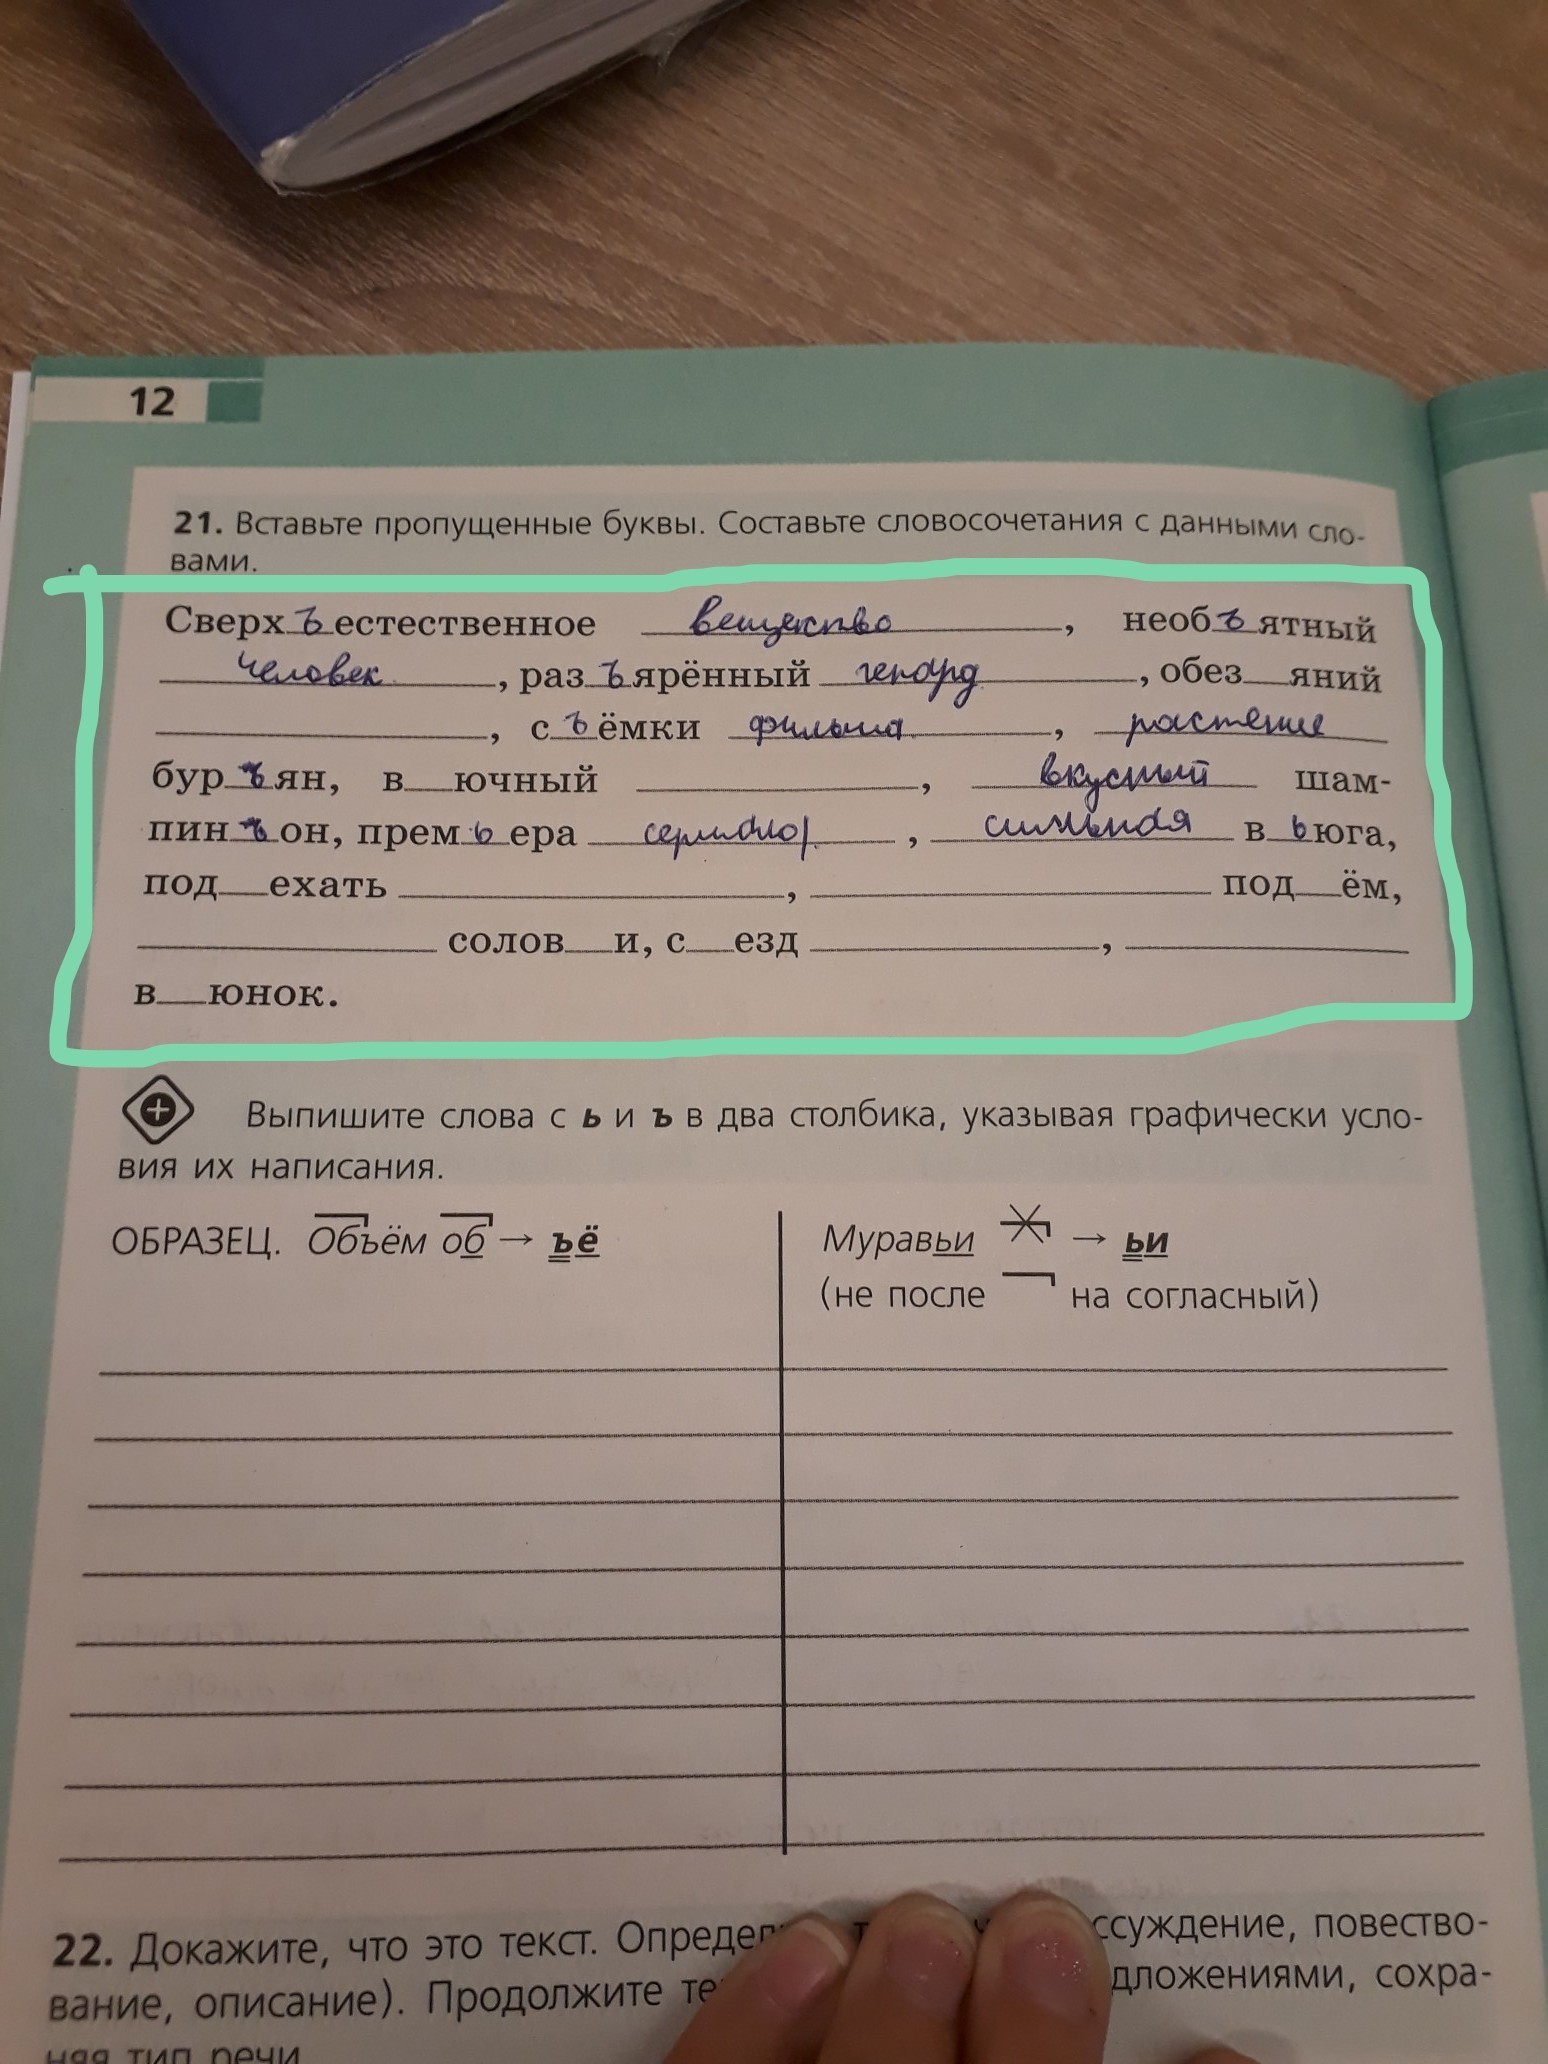 12
21. Вставьте пропущенные буквы. Составьте словосочетания с данными сло-
вами.
Сверх ъ естественное вещество, необ ъ ятный
человек, раз ъ ярённый гепард, обез__яний
____, с ъ ёмки фильма, растение
бур ъ ян, в__ючный ____, вкусный шам-
пин ъ он, прем ь ера , сильная в ь юга,
под__ехать ____, ____ под__ём,
____ солов__и, с__езд ____, ____
в__юнок.
Выпишите слова с ь и ъ в два столбика, указывая графически усло-
вия их написания.
ОБРАЗЕЦ. Объём об → ъё
Муравьи → ьи
(не после на согласный)
22. Докажите, что это текст. Опреде ссуждение, повество-
вание, описание). Продолжите те дложениями, сохра-
няя тип речи